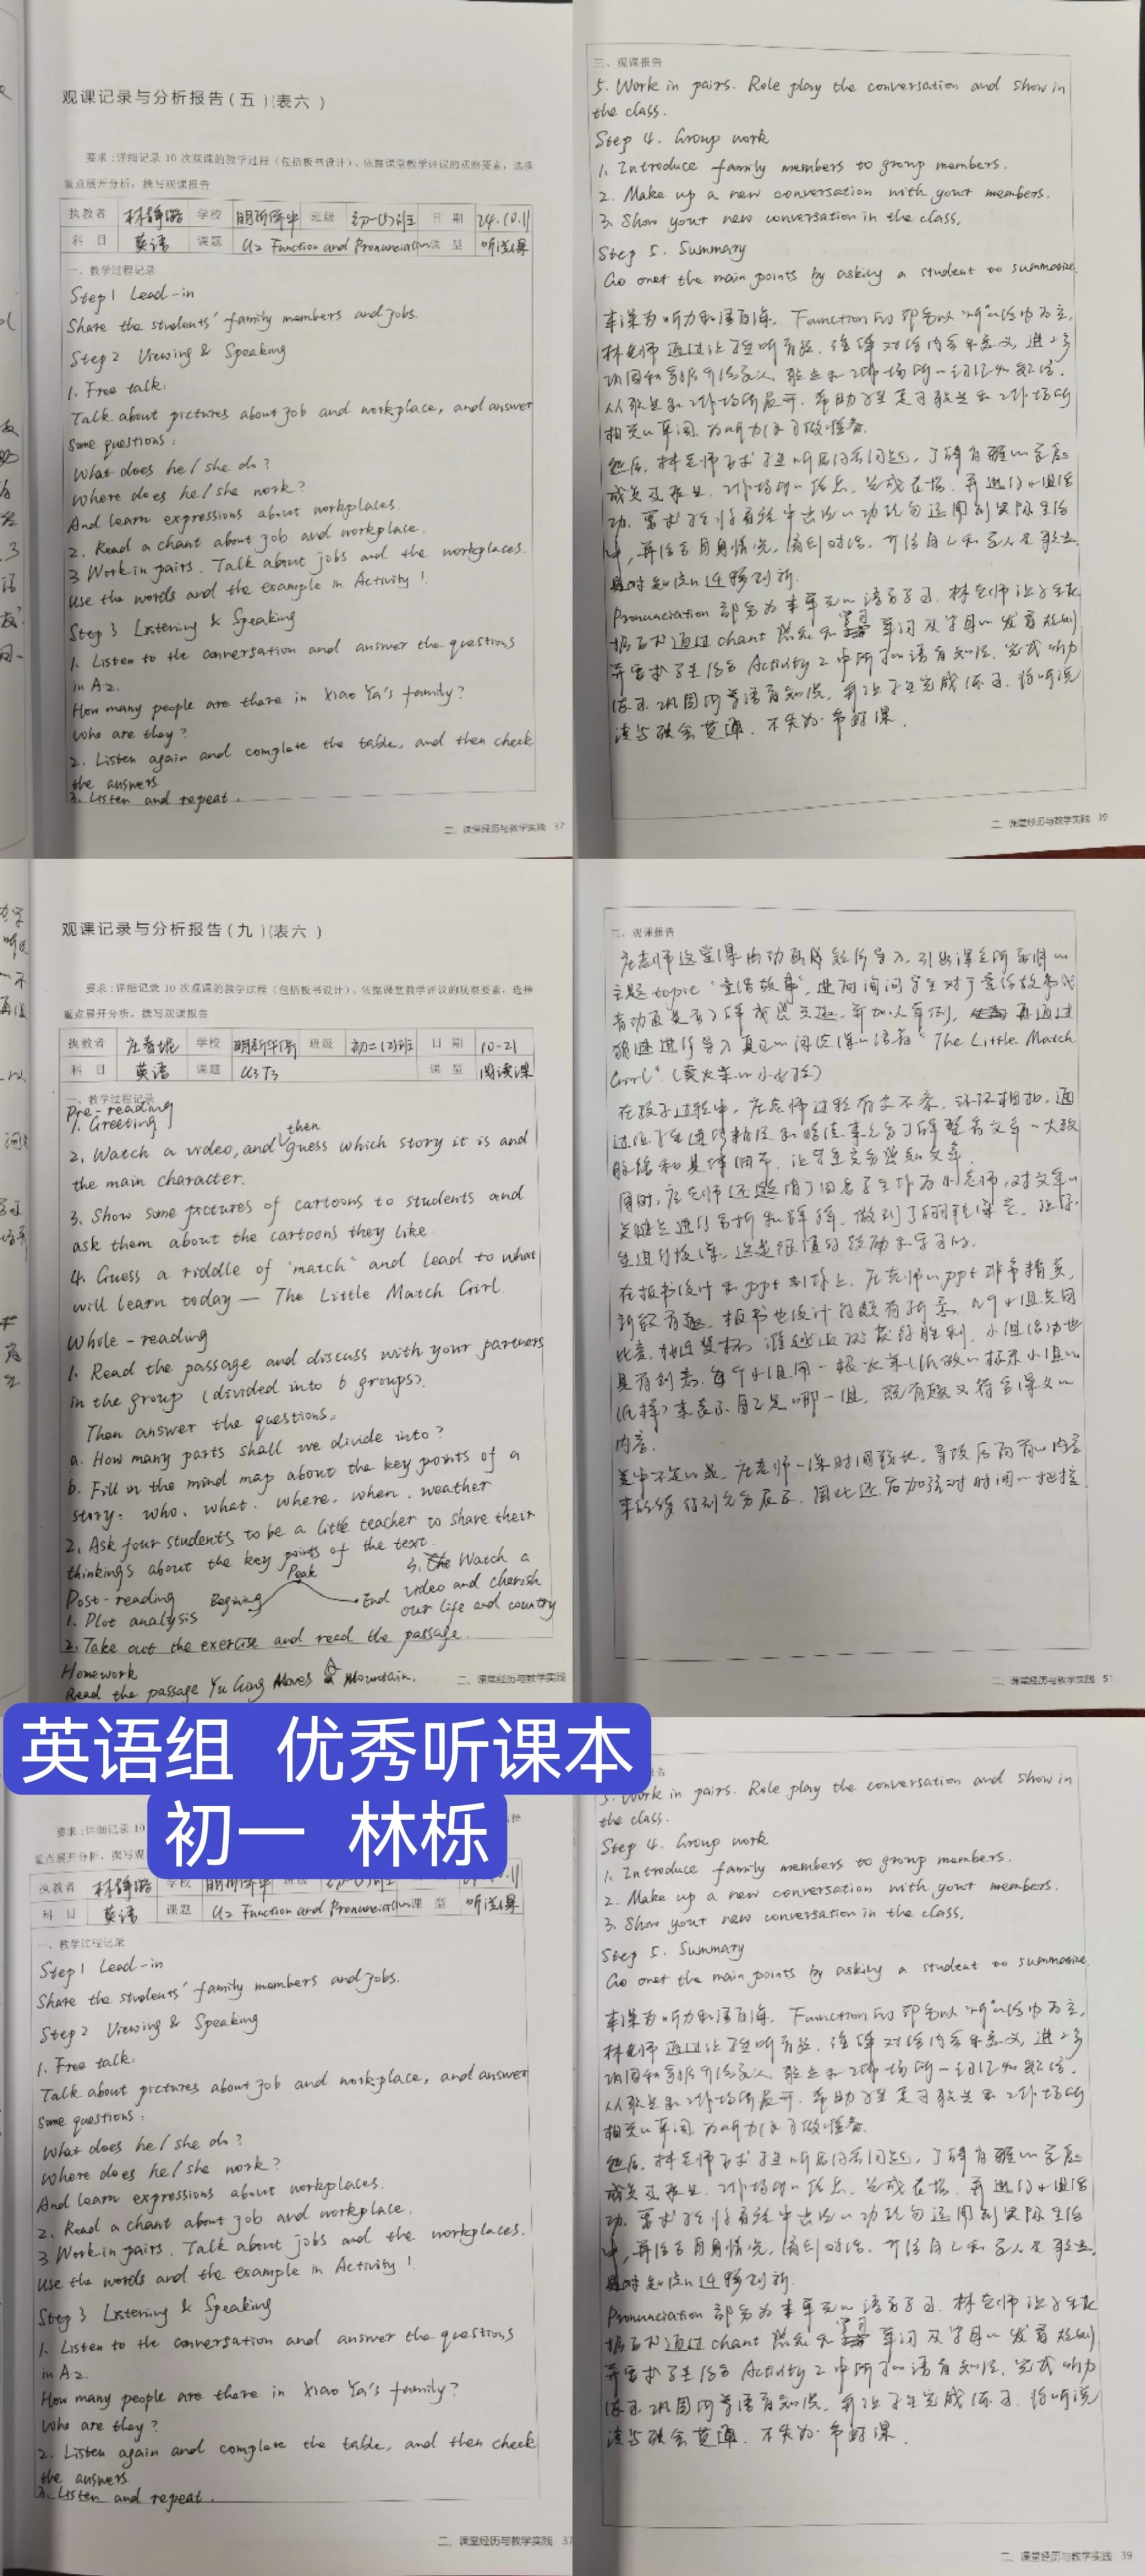 观课记录与分析报告(五)(表六)
要求:详细记录10次观课的教学过程(包括板书设计),依据课堂教学评议的观察要素,选择
重点展开分析,撰写观课报告
执教者 林静 学校 班级 日期 24.10.11
科目 英语 课题 U2 Function and Pronunciation 课型 听说课
一、教学过程记录
Step1 Lead-in
Share the students' family members and jobs.
Step2 Viewing & Speaking
1. Free talk.
Talk about pictures about job and workplace, and answer
some questions:
What does he/she do?
Where does he/she work?
And learn expressions about workplaces.
2. Read a chant about job and workplace.
3 Work in pairs. Talk about jobs and the workplaces.
Use the words and the example in Activity 1.
Step3 Listening & Speaking
1. Listen to the conversation and answer the questions
in A2.
How many people are there in Xiao Ya's family?
Who are they?
2. Listen again and complete the table, and then check
the answers
3. Listen and repeat.
二、课堂经历与教学实践 37
三、观课报告
5. Work in pairs. Role play the conversation and show in
the class.
Step 4. Group work
1. Introduce family members to group members.
2. Make up a new conversation with your members.
3. Show your new conversation in the class.
Step 5. Summary
Go over the main points by asking a student to summarize.
本课为听力和语音课。Function 的部分以"听"的活动为主,
林老师通过让学生听音频,理解对话内容和意义,进一步
巩固和
从职业和工作场所展开,帮助学生学习职业和工作场所
相关的单词,为听力学习做准备。
然后,林老师要求学生听后回答问题,了解
成员及职业、工作场所
动,要求学生将音频中出现的功能句运用到实际生活
中,并结合自身情况,编创对话,介绍自己和家人及职业,
及时知识的迁移创新。
Pronunciation 部分为本单元的语音学习,林老师让学生根
据 通过 chant 单词及字母的发音规则
并要求学生结合 Activity 2 中所学的语音知识,完成听力
练习,巩固所学语音知识,并让学生完成练习,将听说
读与融会贯通,不失为一节好课。
二、课堂经历与教学实践 39
观课记录与分析报告(九)(表六)
要求:详细记录10次观课的教学过程(包括板书设计),依据课堂教学评议的观察要素,选择
重点展开分析,撰写观课报告
执教者 庄 学校 班级 日期 10-21
科目 英语 课题 U3T3 课型 阅读课
一、教学过程记录
Pre-reading
1. Greeting
2. Watch a video, and then guess which story it is and
the main character.
3. Show some pictures of cartoons to students and
ask them about the cartoons they like.
4. Guess a riddle of "match" and lead to what
will learn today — The Little Match Girl.
Whole-reading
1. Read the passage and discuss with your partners
in the group (divided into 6 groups).
Then answer the questions.
a. How many parts shall we divide into?
b. Fill in the mind map about the key points of a
story: who, what, where, when, weather
2. Ask four students to be a little teacher to share their
thinkings about the key points of the text.
Post-reading
Begining Peak End
1. Plot analysis
2. Take out the exercise and read the passage.
3. Watch a
video and cherish
our life and country
Homework
Read the passage Yu Gong Moves A Mountain.
二、课堂经历与教学实践
三、观课报告
庄老师这堂课由动画 短片导入,引出课文所要讲的
主题 topic "童话故事",进而询问学生对于童话故事或
者动画是否了解或感兴趣,并加入举例,再通过
猜谜进行导入真正的阅读课的语篇 "The Little Match
Girl"(卖火柴的小女孩)
在授课过程中,庄老师过程有条不紊,环环相扣,通
过让学生进行精读和略读来充分了解整篇文章的大致
脉络和具体细节,让学生充分感知文章。
同时,庄老师还邀请了四名学生作为小老师,对文章的
关键点进行分析和讲解,做到了翻转课堂,让学
生进行授课,这是很值得鼓励和学习的。
在板书设计和ppt制作上,庄老师的ppt非常精美,
新颖有趣,板书也设计的颇有新意
比赛, 谁越 获得胜利,小组活动也
具有创意,每个小组用一根火柴(纸做的标示小组的
纸棒)来表示自己是哪一组,既有趣又符合课文的
内容。
美中不足的是,庄老师的课时间较长,导致后面的内容
未能够得到充分展示,因此还需加强对时间的把控。
二、课堂经历与教学实践 51
英语组 优秀听课本
初一 林栎
要求:详细记录10
重点展开分析,撰写观
执教者 林静 学校
科目 英语 课题 U2 Function and Pronunciation 课型 听说课
一、教学过程记录
Step1 Lead-in
Share the students' family members and jobs.
Step2 Viewing & Speaking
1. Free talk.
Talk about pictures about job and workplace, and answer
some questions:
What does he/she do?
Where does he/she work?
And learn expressions about workplaces.
2. Read a chant about job and workplace.
3 Work in pairs. Talk about jobs and the workplaces.
Use the words and the example in Activity 1.
Step3 Listening & Speaking
1. Listen to the conversation and answer the questions
in A2.
How many people are there in Xiao Ya's family?
Who are they?
2. Listen again and complete the table, and then check
the answers
3. Listen and repeat.
二、课堂经历与教学实践 37
5. Work in pairs. Role play the conversation and show in
the class.
Step 4. Group work
1. Introduce family members to group members.
2. Make up a new conversation with your members.
3. Show your new conversation in the class.
Step 5. Summary
Go over the main points by asking a student to summarize.
本课为听力和语音课。Function 的部分以"听"的活动为主,
林老师通过让学生听音频,理解对话内容和意义,进一步
巩固和
从职业和工作场所展开,帮助学生学习职业和工作场所
相关的单词,为听力学习做准备。
然后,林老师要求学生听后回答问题,了解
成员及职业、工作场所
动,要求学生将音频中出现的功能句运用到实际生活
中,并结合自身情况,编创对话,介绍自己和家人及职业,
及时知识的迁移创新。
Pronunciation 部分为本单元的语音学习,林老师让学生根
据 通过 chant 单词及字母的发音规则
并要求学生结合 Activity 2 中所学的语音知识,完成听力
练习,巩固所学语音知识,并让学生完成练习,将听说
读与融会贯通,不失为一节好课。
二、课堂经历与教学实践 39